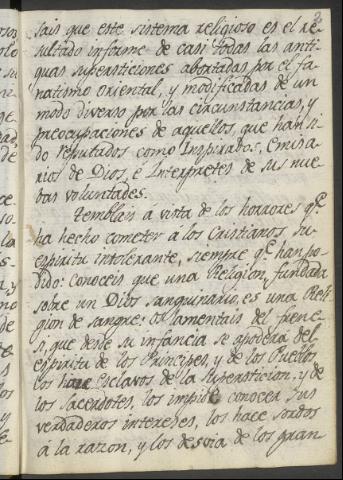 sais que este sistema religioso es el re-
sultado informe de casi todas las anti-
guas supersticiones abortadas por el fa-
natismo oriental, y modificadas de un
modo diverso por las circunstancias, y
preocupaciones de aquellos, que han si-
do reputados como Inspirados, Emisa-
rios de Dios, è Interpretes de sus nue-
bas voluntades.
Temblais à vista de los horrores q.e
ha hecho cometer à los Cristianos su
espiritu intolerante, siempre q.e han po-
dido: conoceis que una Religion, fundada
sobre un Dios sanguinario, es una Reli-
gion de sangre: Os lamentais del frene-
si, que desde su infancia se apodera del
espiritu de los Principes, y de los Pueblos
los hace esclavos de la Supersticion, y de
los Sacerdotes, los impide conocer sus
verdaderos intereses, los hace sordos
à la razon, y los desvia de los gran-